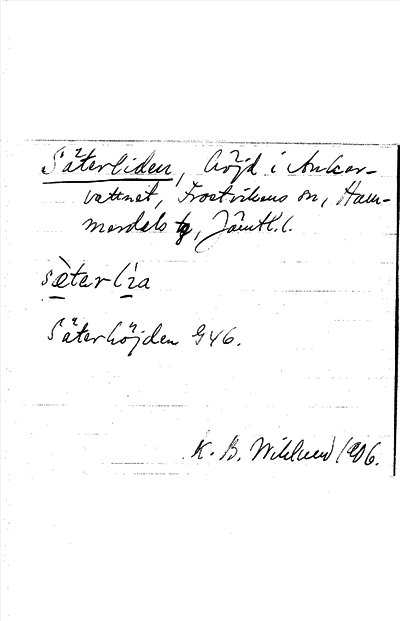 Säterliden, höjd i Anker-
vattnet, Frostvikens sn, Ham-
merdals tg, Jämtl. l.
sèterlìa
Säterhöjden G46.
K. B. Wiklund 1906.